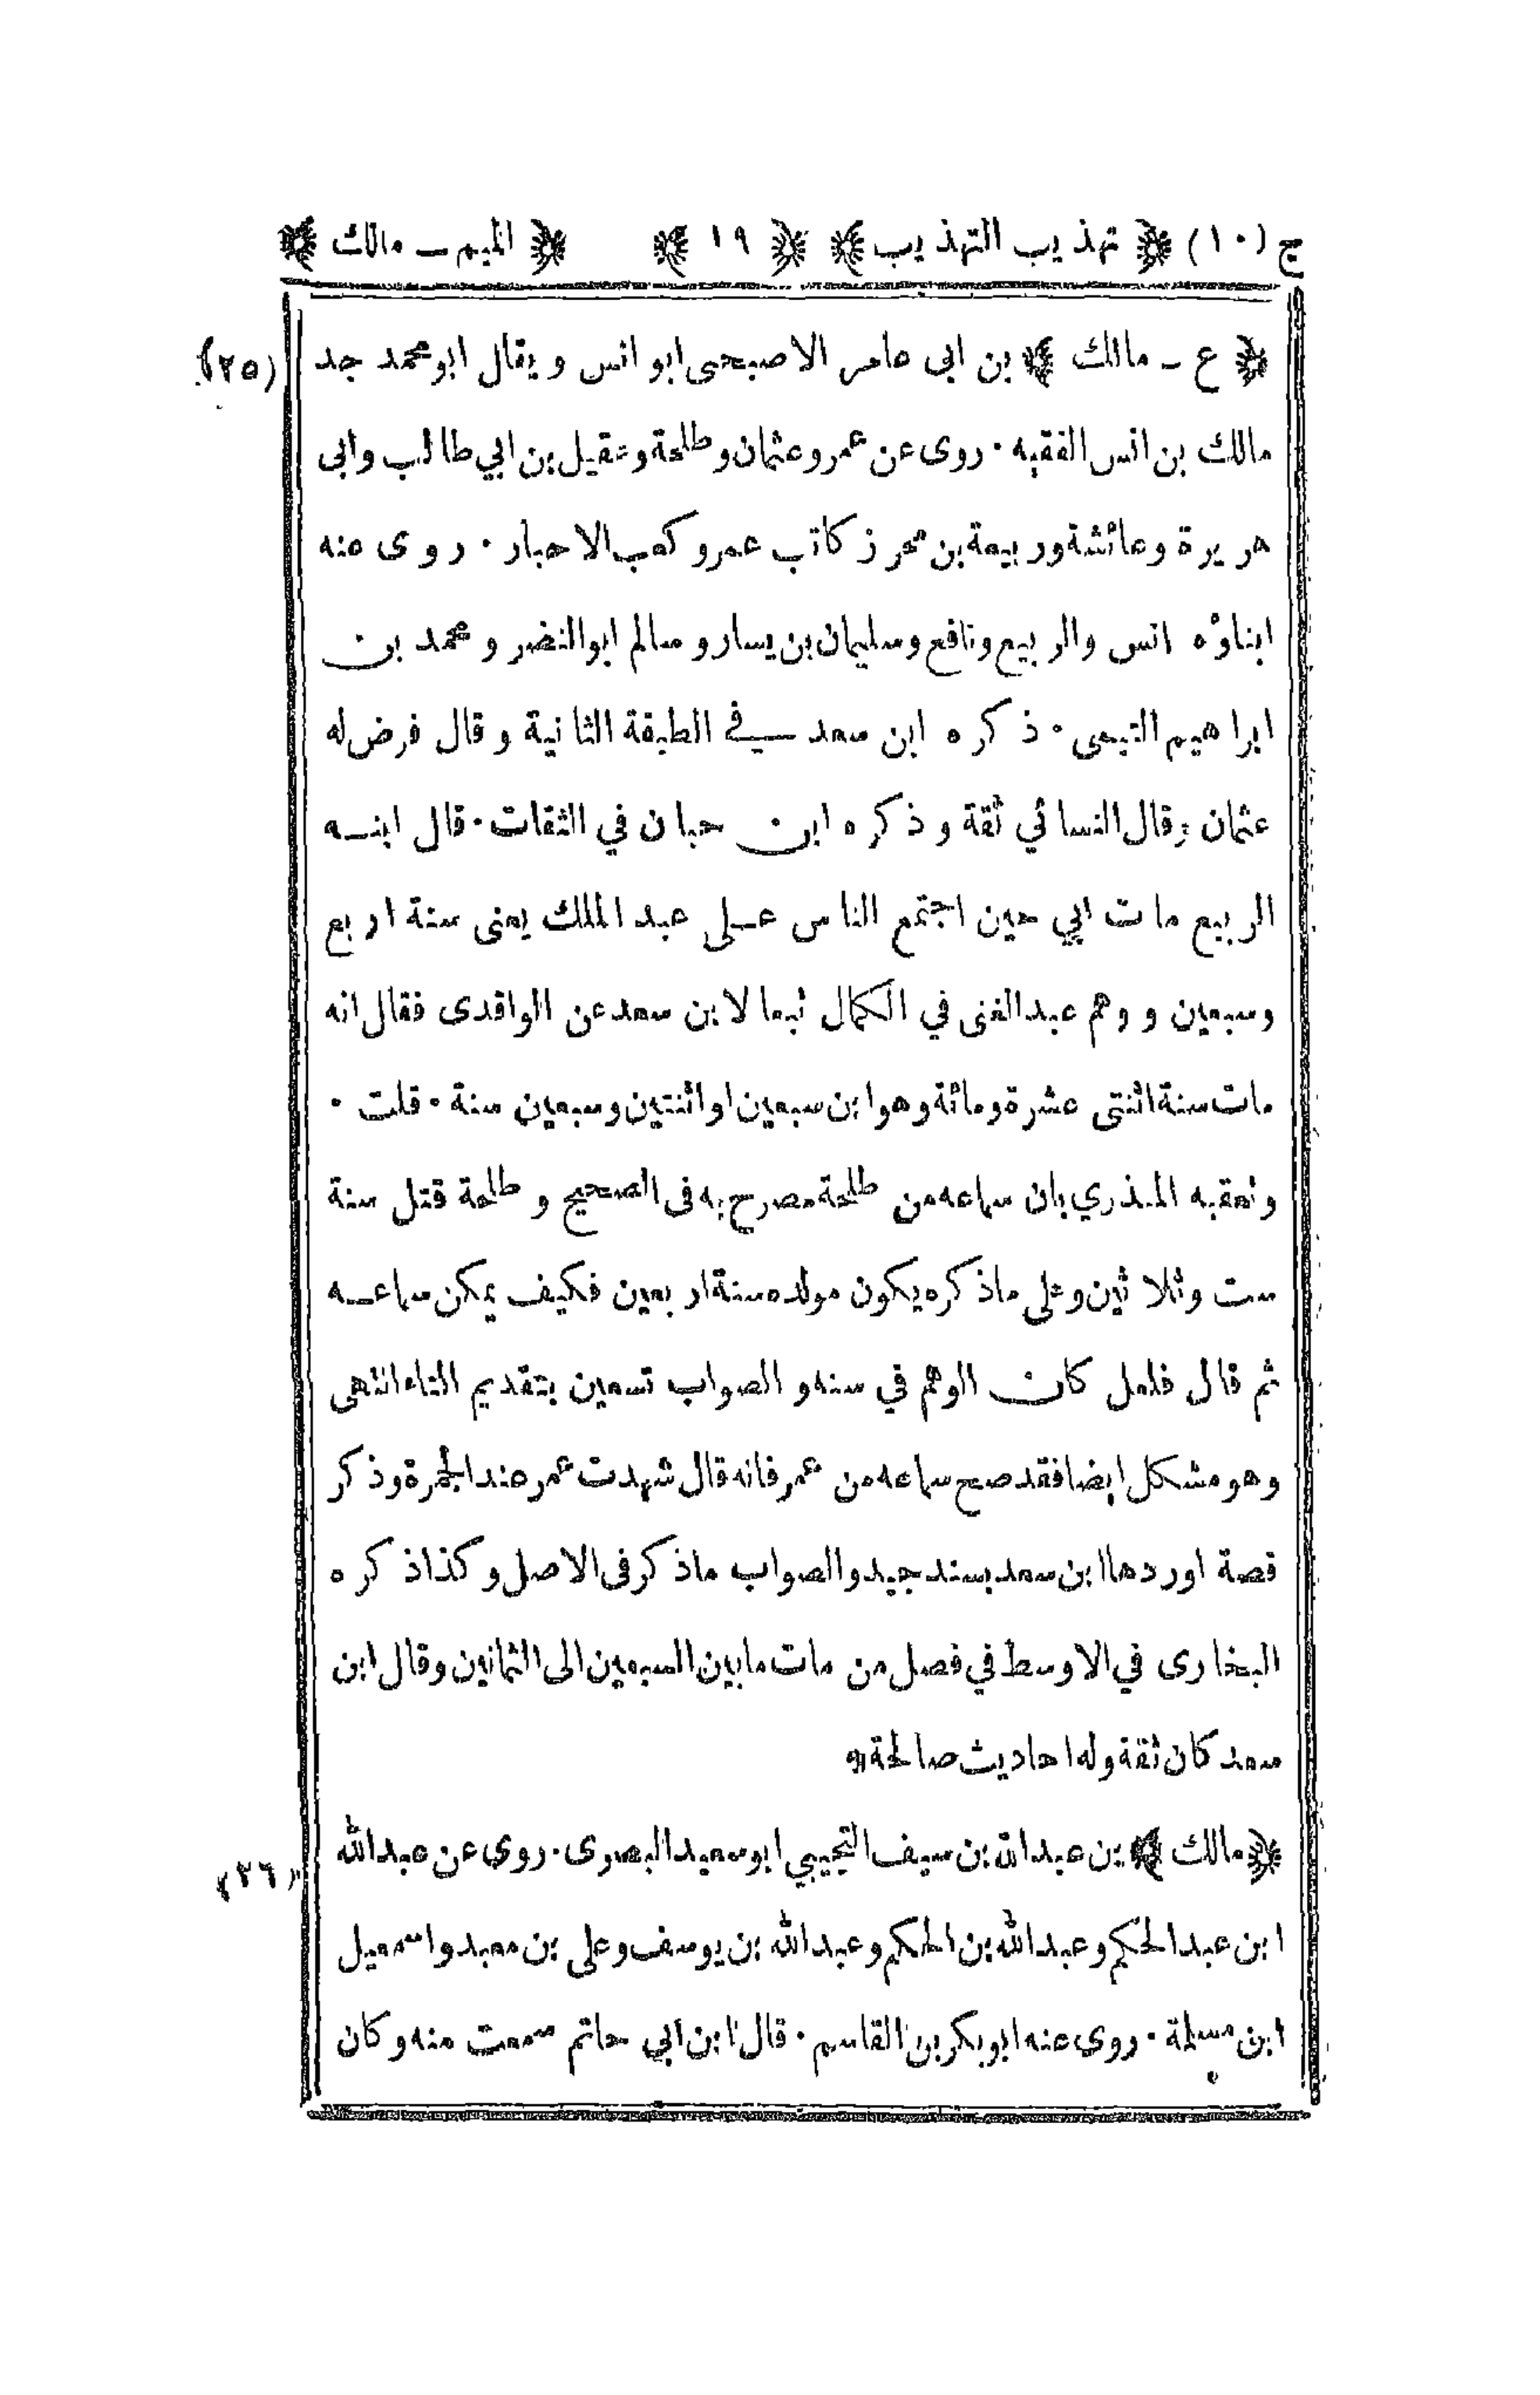 ج (١٠) ﴿ تهذيب التهذيب ﴾ ﴿ ١٩ ﴾ ﴿ الميم ـ مالك ﴾
﴿ ع ـ مالك ﴾ بن ابى عامر الاصبحى ابو انس ويقال ابو محمد جد (٢٥)
مالك بن انس الفقيه ٠ روى عن عمر وعثمان وطلحة وعقيل بن ابي طالب وابى
هريرة وعائشة وربيعة بن محرز كاتب عمر وكعب الاحبار ٠ روى عنه
ابناؤه انس والربيع ونافع وسليمان بن يسار وسالم ابو النضر ومحمد بن
ابراهيم التيمى ٠ ذكره ابن سعد في الطبقة الثانية وقال فرض له
عثمان وقال النسائي ثقة وذكره ابن حبان في الثقات ٠ قال ابنه
الربيع مات ابي حين اجتمع الناس على عبد الملك يعنى سنة اربع
وسبعين ووهم عبد الغنى في الكمال تبعا لابن سعد عن الواقدى فقال انه
مات سنة اثنتى عشرة ومائة وهو ابن سبعين او اثنتين وسبعين سنة ٠ قلت ٠
وتعقبه المنذري بان سماعه من طلحة مصرح به فى الصحيح وطلحة قتل سنة
ست وثلاثين وعلى ماذكره يكون مولده سنة اربعين فكيف يمكن سماعه
ثم قال فلعل كان الوهم في سنه والصواب تسعين بتقديم التاء انتهى
وهو مشكل ايضا فقد صح سماعه من عمر فانه قال شهدت عمر عند الجمرة وذكر
قصة اوردها ابن سعد بسند جيد والصواب ماذكر فى الاصل وكذا ذكره
البخارى في الاوسط في فصل من مات مابين السبعين الى الثمانين وقال ابن
سعد كان ثقة وله احاديث صالحة *
﴿ مالك ﴾ بن عبد الله بن سيف التجيبي ابو سعيد البصرى ٠ روى عن عبد الله (٢٦)
ابن عبد الحكم وعبد الله بن الحكم وعبد الله بن يوسف وعلى بن معبد واسمعيل
ابن مسلمة ٠ روى عنه ابو بكر بن القاسم ٠ قال ابن ابي حاتم سمعت منه وكان